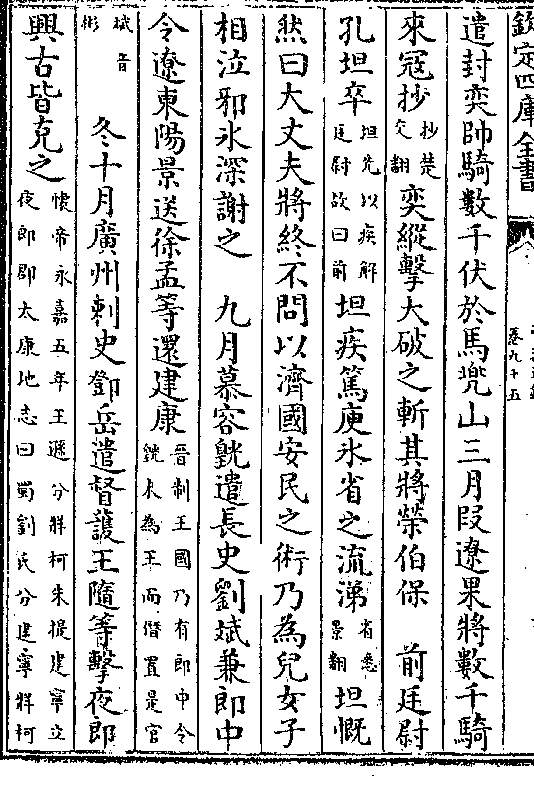 欽定四庫全書
卷九十五
遣封奕帥騎數千伏於馬兜山三月叚遼果將數千騎
來冦抄抄楚交翻奕縱擊大破之斬其將榮伯保 前廷尉
孔坦卒坦先以疾解廷尉故曰前坦疾篤庾氷省之流涕省悉景翻坦慨
然曰大丈夫將終不問以濟國安民之術乃為兒女子
相泣邪氷深謝之 九月慕容皝遣長史劉斌兼郎中
令遼東陽景送徐孟等還建康晉制王國乃有郎中令皝未為王而僭置是官
斌音彬 冬十月廣州刺史鄧岳遣督䕶王隨等擊夜郎
興古皆克之懷帝永嘉五年王遜分牂柯朱提建寧立夜郎郡太康地志曰蜀劉氏分建寧牂柯